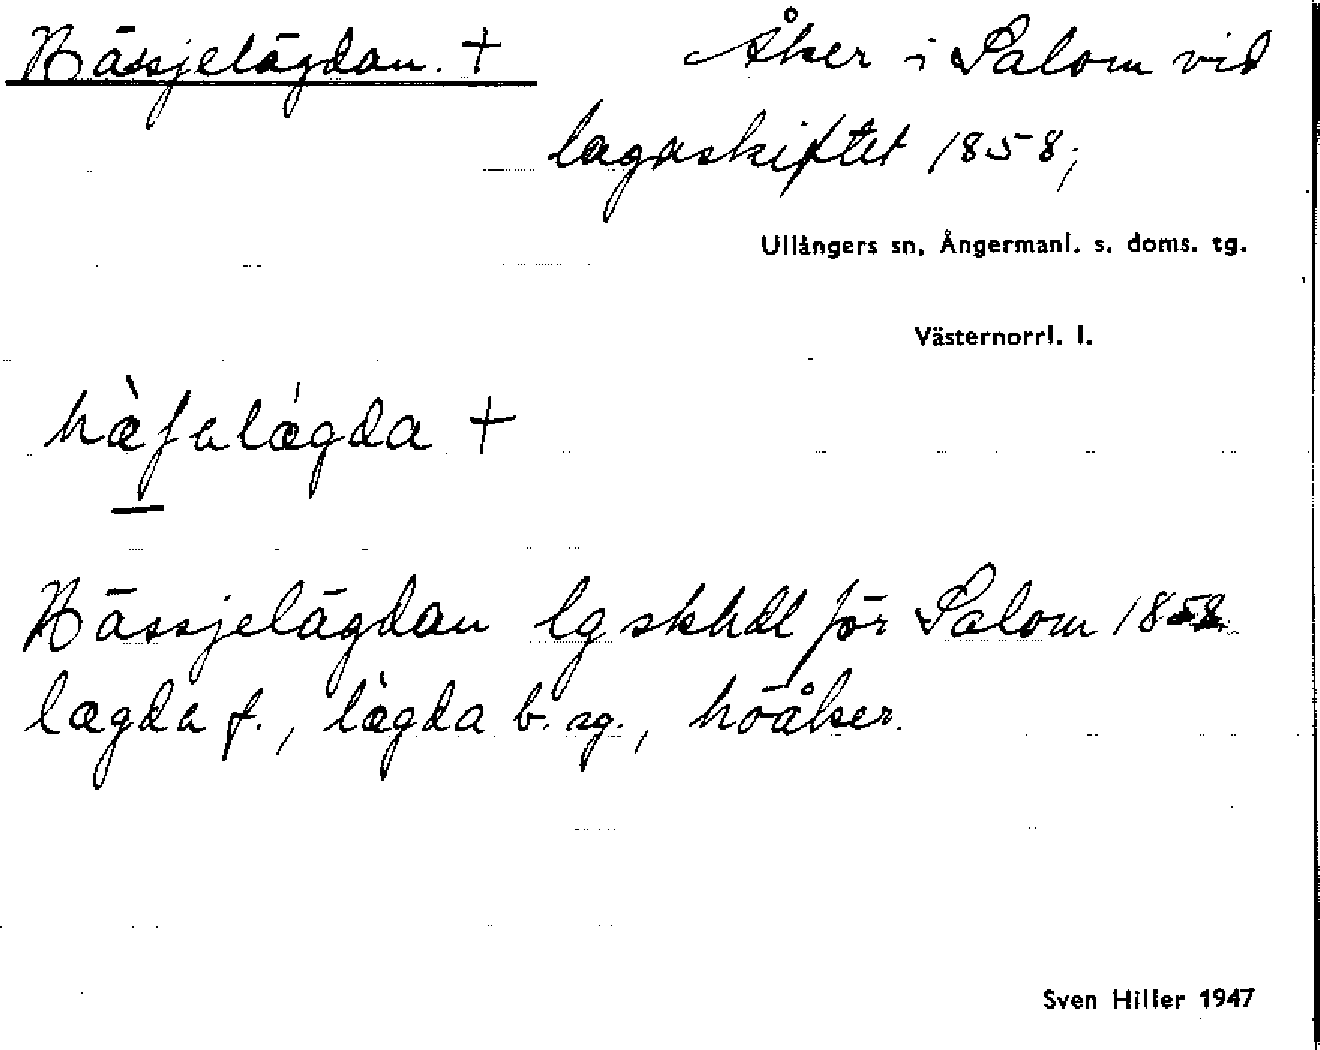 Hässjelägdan. + Åker i Salom vid
lagaskiftet 1858;
Ullångers sn, Ångermanl. s. doms. tg.
Västernorrl. l.
hæ̀ʃalǽgda +
Hässjelägdan lgskhdl för Salom 1858.
lægda f., læ̀gda b. sg., höåker.
Sven Hiller 1947